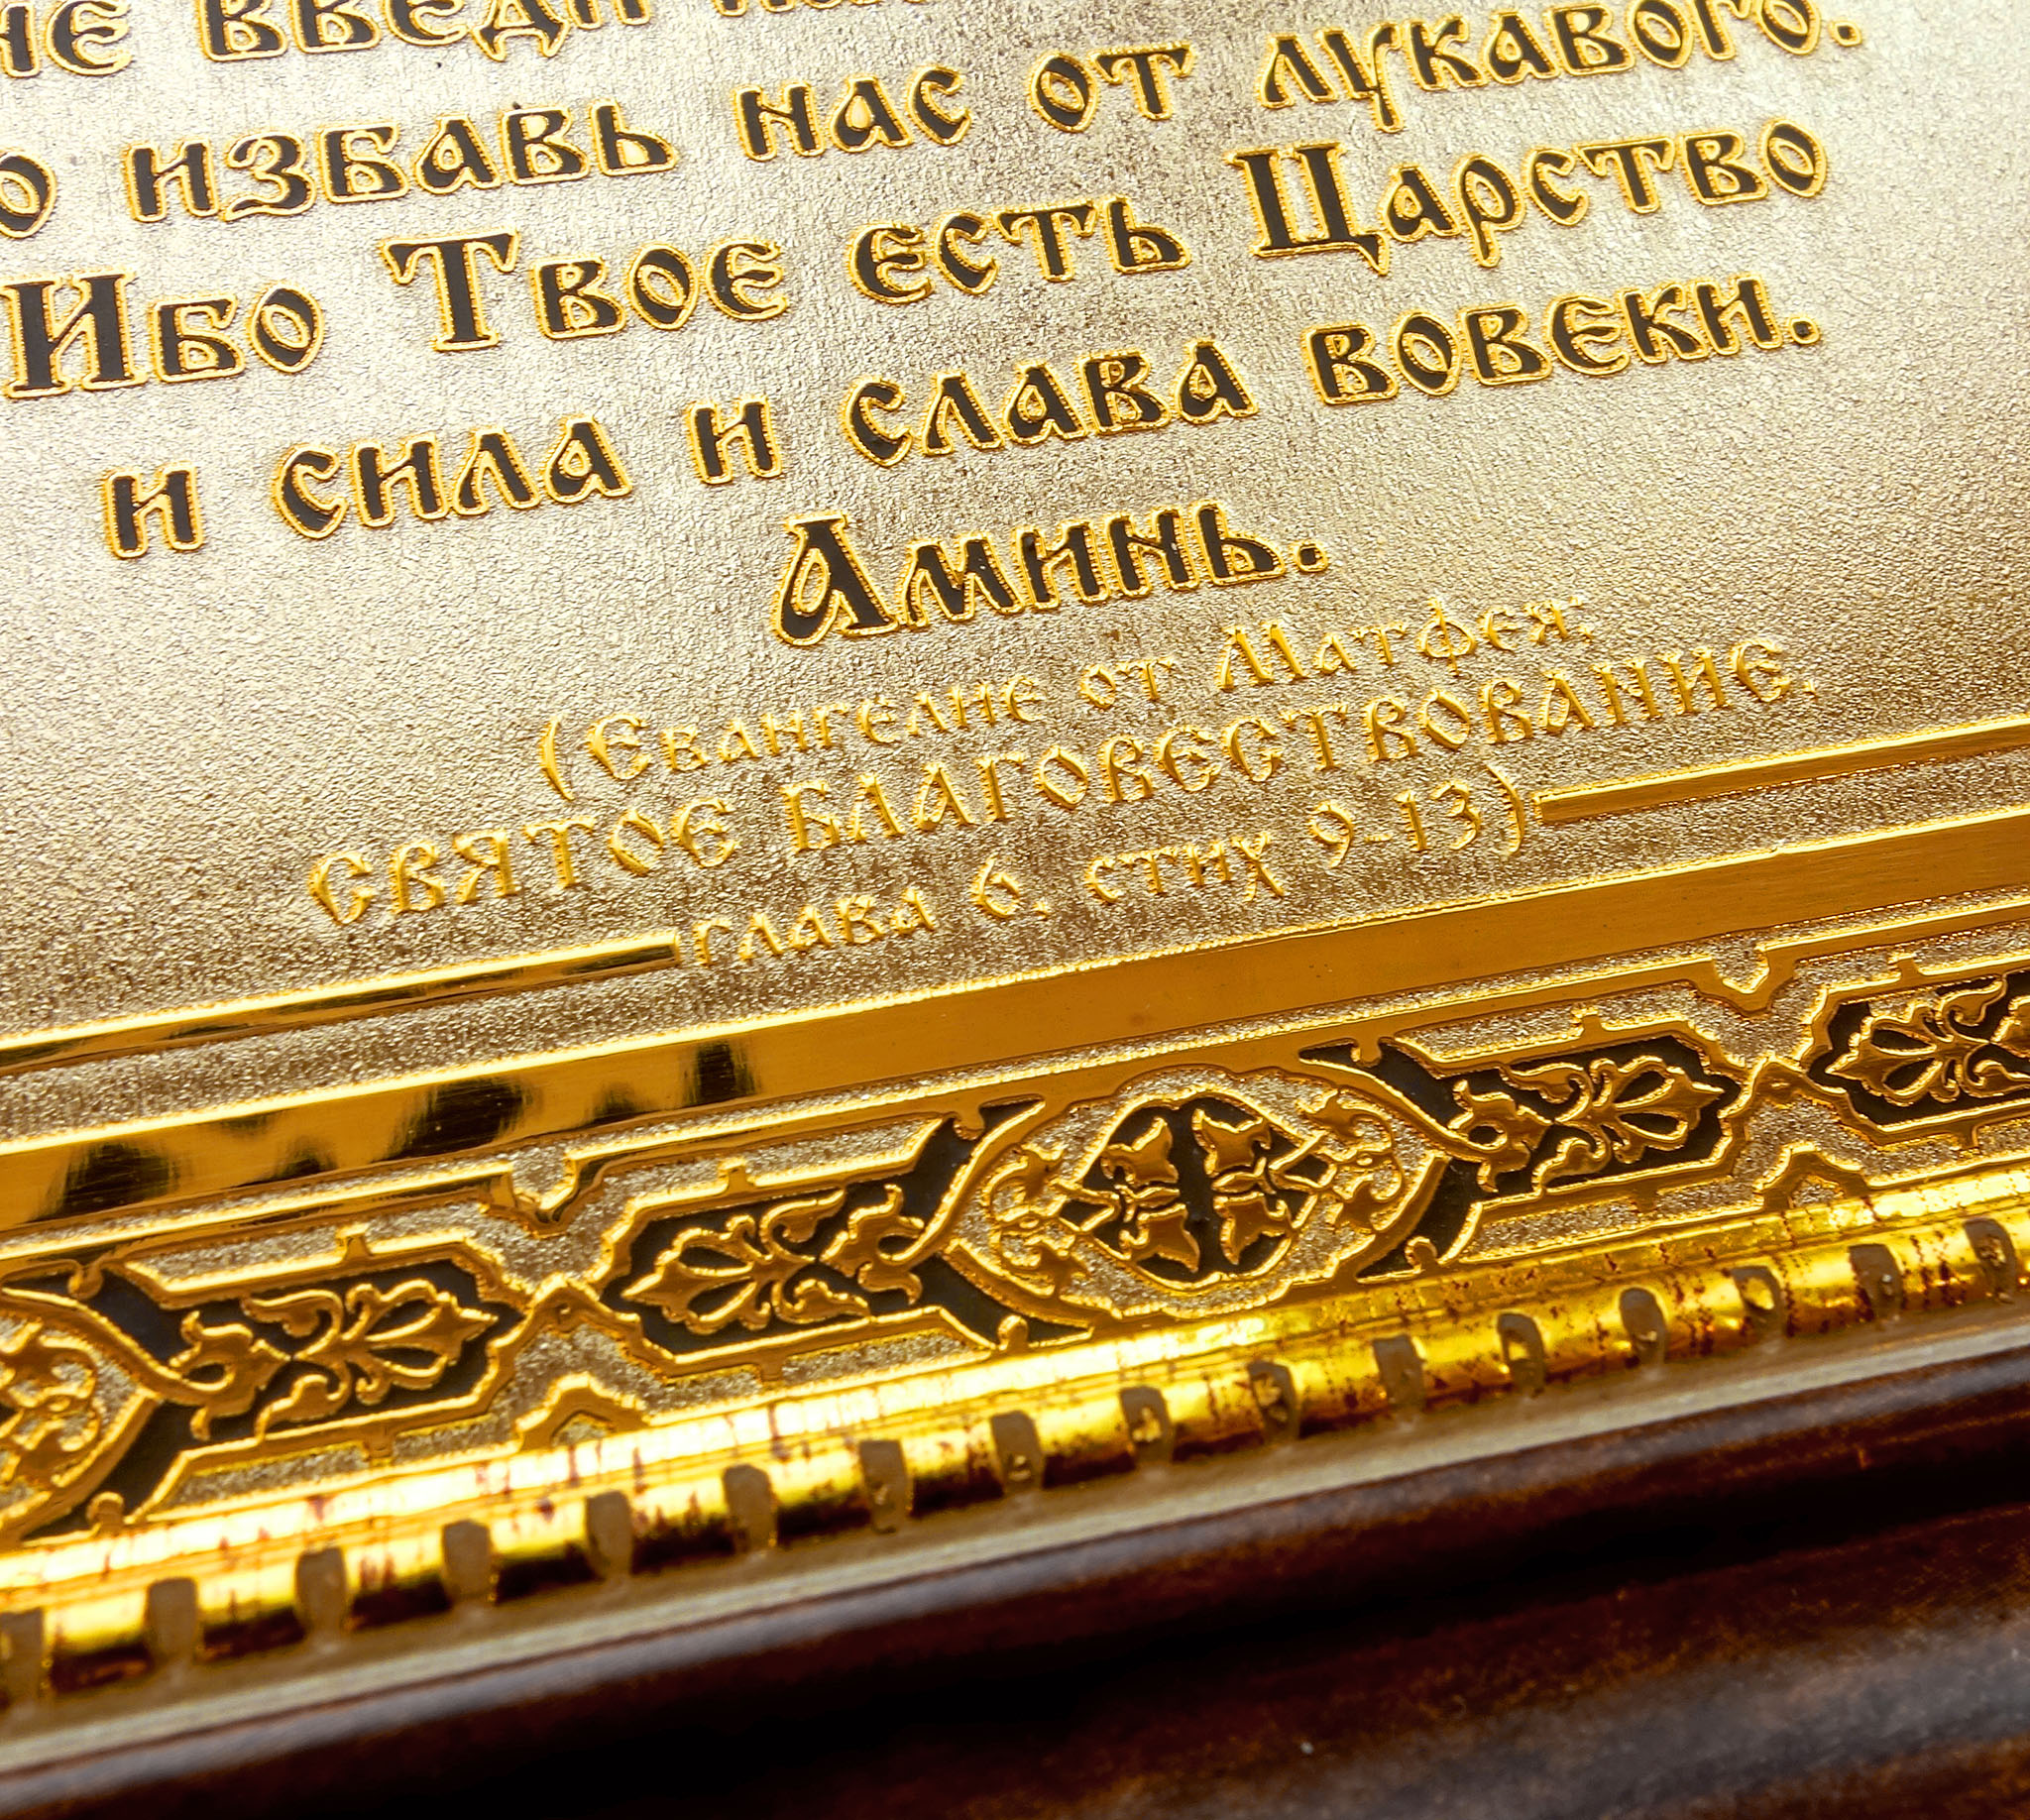 не введи
избавь нас от лукавого.
Ибо Твое есть Царство
и сила и слава вовеки.
Аминь.
(Евангелие от Матфея;
СВЯТОЕ БЛАГОВЕСТВОВАНИЕ,
глава 6, стих 9-13)